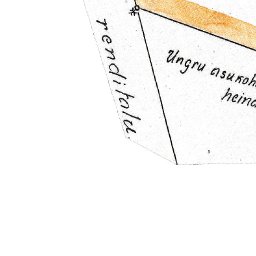 renditalu.
Ungru asukoh
heina